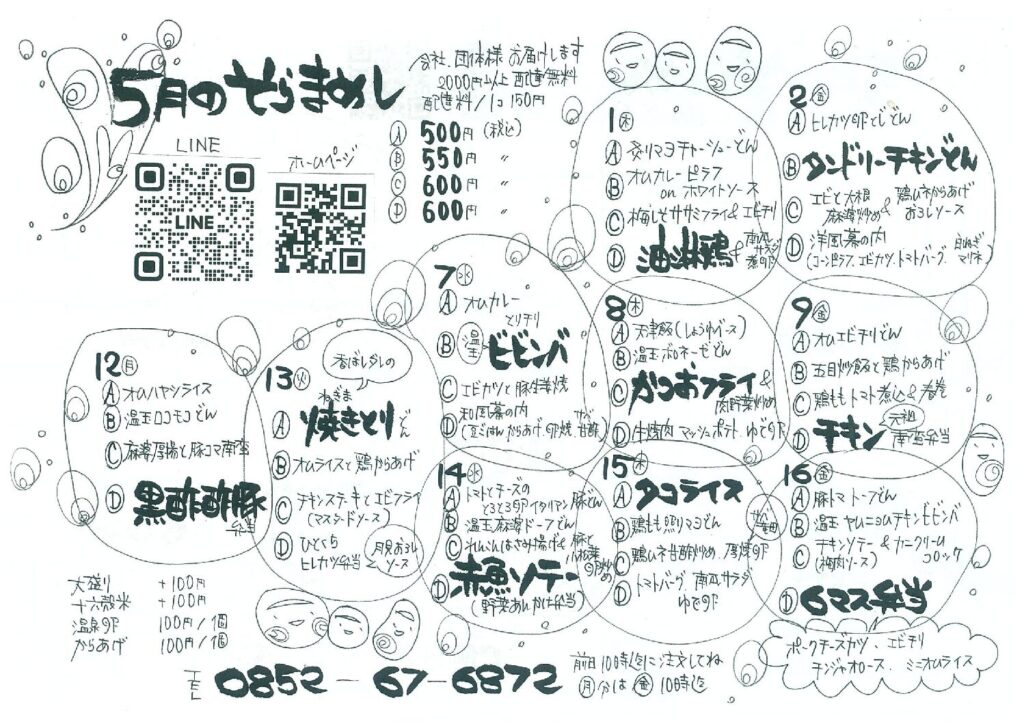 5月のそらまめし
会社、団体様お届けします
2000円以上 配達無料
配達料/1コ 150円
Ⓐ 500円(税込)
Ⓑ 550円 〃
Ⓒ 600円 〃
Ⓓ 600円 〃
LINE
LINE
ホームページ
1㊍
Ⓐ 炙りマヨチャーシューどん
Ⓑ オムカレーピラフ
on ホワイトソース
Ⓒ 梅しそササミフライ&エビチリ
Ⓓ 油淋鶏&南瓜サラダ
煮卵
2㊎
Ⓐ ヒレカツ卵とじどん
Ⓑ タンドリーチキンどん
Ⓒ エビと大根麻婆炒め&鶏ムネからあげ
おろしソース
Ⓓ 洋風幕の内
(コーンピラフ、エビカツ、トマトバーグ、白ねぎマリネ)
7㊌
Ⓐ オムカレー
とりチリ
Ⓑ 温玉ビビンバ
Ⓒ エビカツと豚生姜焼
Ⓓ 和風幕の内
(豆ごはん からあげ、卵焼、サバ甘酢)
8㊍
Ⓐ 天津飯(しょうゆベース)
Ⓑ 温玉ボロネーゼどん
Ⓒ かつおフライ&
肉野菜炒め
Ⓓ 牛焼肉 マッシュポテト、ゆで卵
9㊎
Ⓐ オムエビチリどん
Ⓑ 五目炒飯と鶏からあげ
Ⓒ 鶏ももトマト煮込&春巻
Ⓓ 元祖チキン南蛮弁当
12㊊
Ⓐ オムハヤシライス
Ⓑ 温玉ロコモコどん
Ⓒ 麻婆厚揚と豚コマ南蛮
Ⓓ 黒酢酢豚
弁当
13㊋
香ばしタレの
Ⓐ ねぎま焼きとりどん
Ⓑ オムライスと鶏からあげ
Ⓒ チキンステーキとエビフライ
(マスタードソース)
Ⓓ ひとくち
ヒレカツ弁当
月見おろし
ソース
14㊌
Ⓐ トマトとチーズの
とろとろ卵イタリアン豚どん
Ⓑ 温玉麻婆ドーフどん
Ⓒ れんこんはさみ揚げ&豚と小松菜の卵炒め
Ⓓ 赤魚ソテー
(野菜あんかけ弁当)
15㊍
Ⓐ タコライス
Ⓑ 鶏もも照りマヨどん
Ⓒ 鶏ムネ甘酢炒め、厚焼卵
Ⓓ トマトバーグ 南瓜サラダ
ゆで卵
16㊎
Ⓐ 豚トマトーフどん
Ⓑ 温玉 ヤムニョムチキンビビンバ
Ⓒ チキンソテー&カニクリーム
(梅肉ソース) コロッケ
Ⓓ 6マス弁当
ポークチーズカツ、エビチリ
チンジャオロース、ミニオムライス
大盛り +100円
十六穀米 +100円
温泉卵 100円/1個
からあげ 100円/1個
TEL 0852-67-6872
前日10時迄に注文してね
㊊分は㊎10時迄